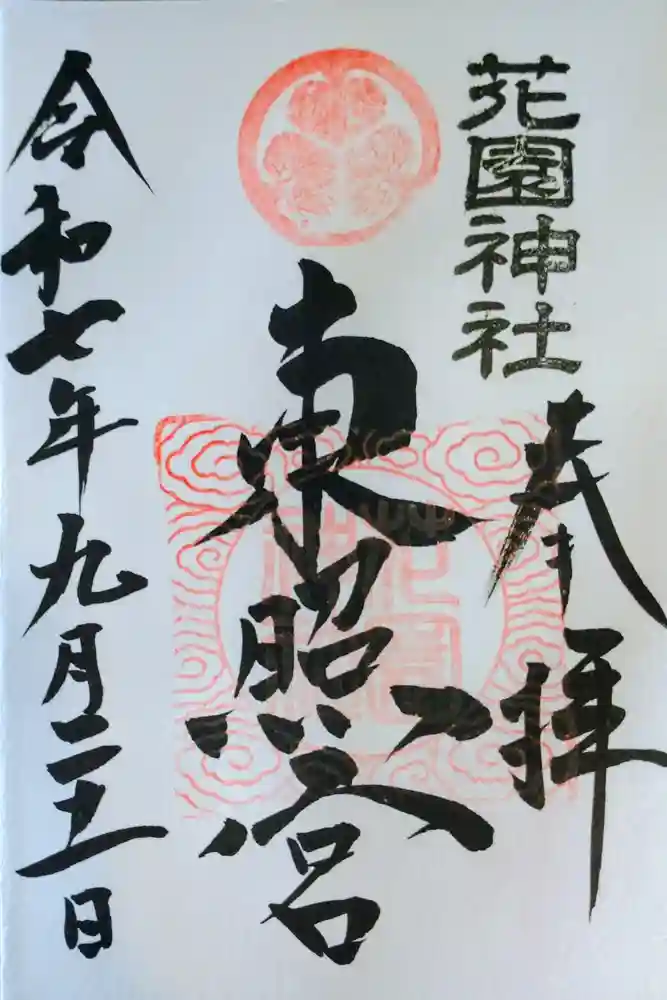 花園神社
奉拝
東照宮
令和七年九月二五日